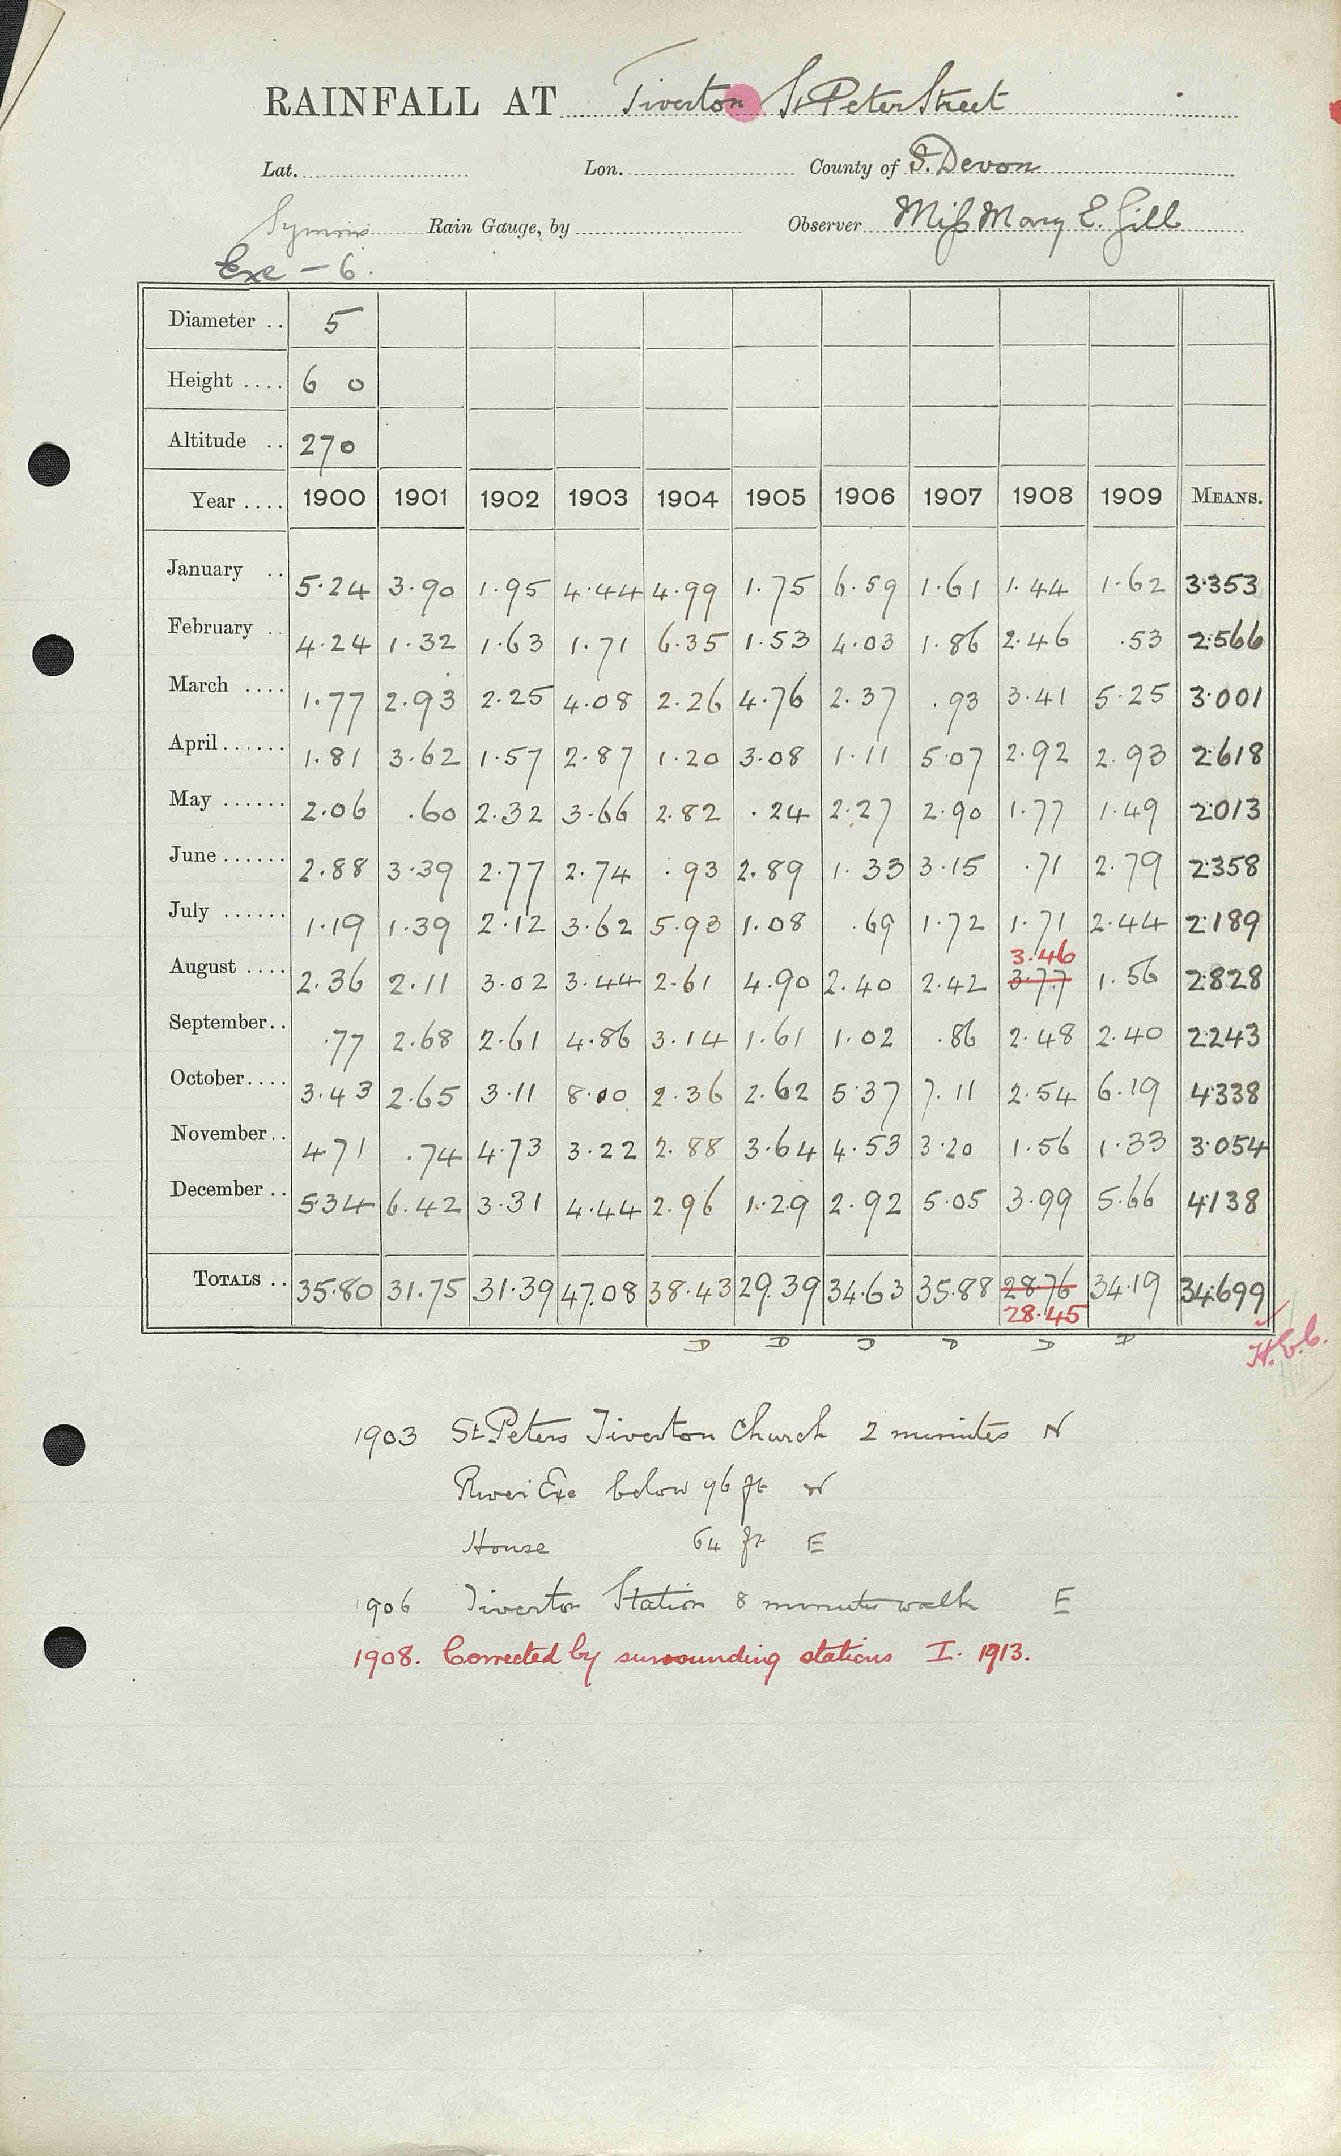 RAINFALL AT Tiverton St Peter Street
Lat. Lon. County of S. Devon
Symons Rain Gauge, by Observer Miss Mary E. Gill
Exe - 6.
Diameter .. 5
Height .... 6 0
Altitude .. 270
Year .... 1900 1901 1902 1903 1904 1905 1906 1907 1908 1909 MEANS.
January .. 5.24 3.90 1.95 4.44 4.99 1.75 6.59 1.61 1.44 1.62 3.353
February .. 4.24 1.32 1.63 1.71 6.35 1.53 4.03 1.86 2.46 .53 2.566
March .... 1.77 2.93 2.25 4.08 2.26 4.76 2.37 .93 3.41 5.25 3.001
April...... 1.81 3.62 1.57 2.87 1.20 3.08 1.11 5.07 2.92 2.93 2.618
May ...... 2.06 .60 2.32 3.66 2.82 .24 2.27 2.90 1.77 1.49 2.013
June...... 2.88 3.39 2.77 2.74 .93 2.89 1.33 3.15 .71 2.79 2.358
July ...... 1.19 1.39 2.12 3.62 5.93 1.08 .69 1.72 1.71 2.44 2.189
3.46
August .... 2.36 2.11 3.02 3.44 2.61 4.90 2.40 2.42 3.77 1.56 2.828
September.. .77 2.68 2.61 4.86 3.14 1.61 1.02 .86 2.48 2.40 2.243
October.... 3.43 2.65 3.11 8.00 2.36 2.62 5.37 7.11 2.54 6.19 4.338
November.. 4.71 .74 4.73 3.22 2.88 3.64 4.53 3.20 1.56 1.33 3.054
December .. 5.34 6.42 3.31 4.44 2.96 1.29 2.92 5.05 3.99 5.66 4.138
TOTALS .. 35.80 31.75 31.39 47.08 38.43 29.39 34.63 35.88 28.76 34.19 34.699
28.45
D D D D D D
H.E.C.
1903 St Peters Tiverton Church 2 minutes N
River Exe below 96 ft W
House 64 ft E
1906 Tiverton Station 8 minutes walk E
1908. Corrected by surrounding stations I. 1913.